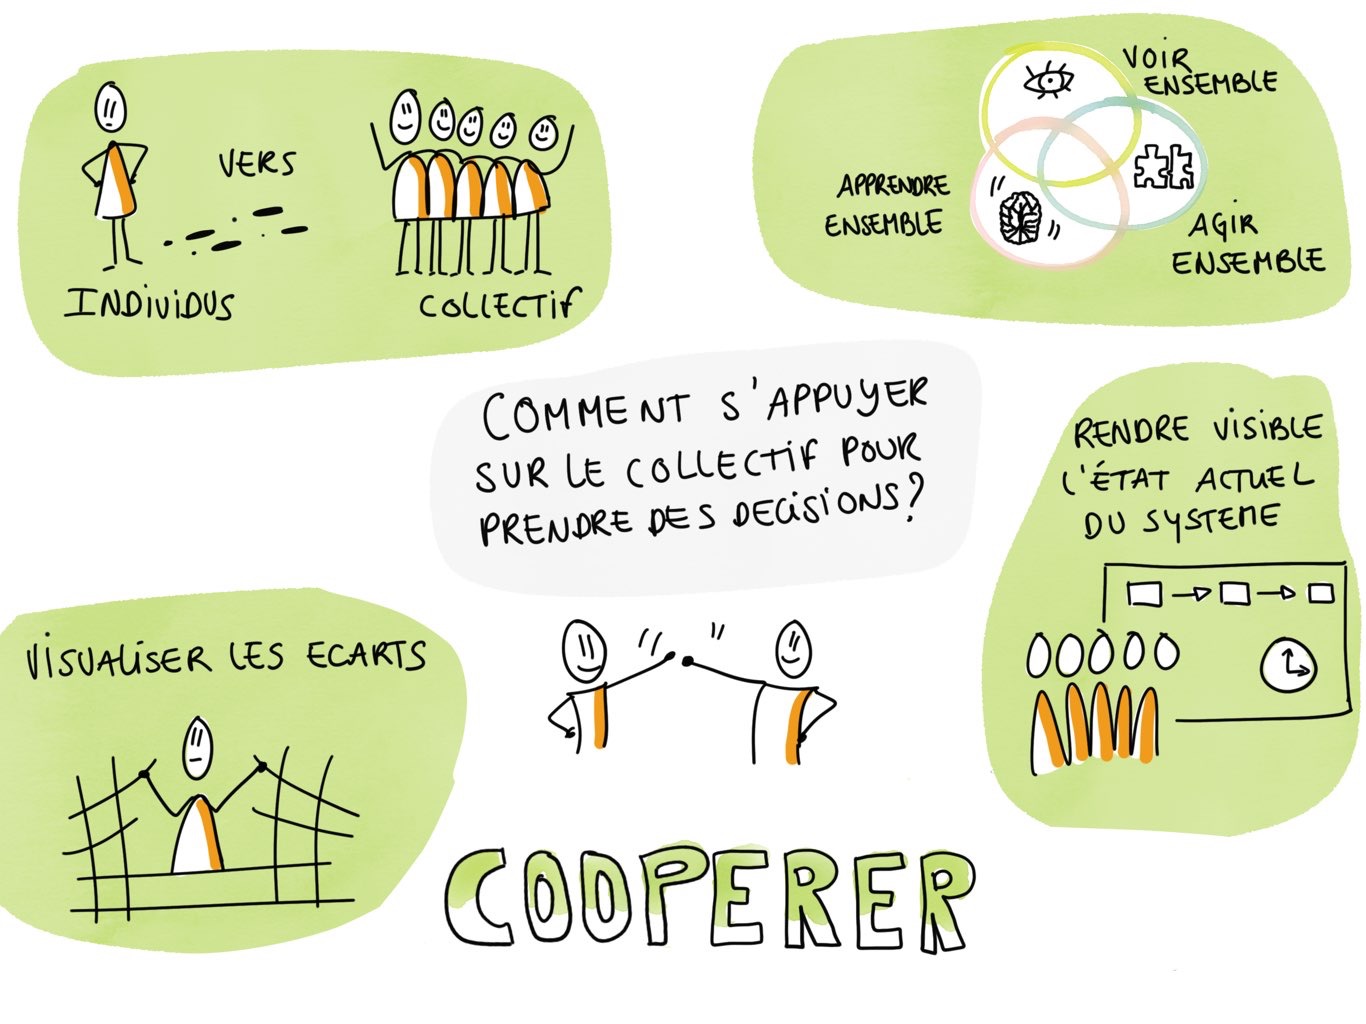 VERS
INDIVIDUS
COLLECTIF
VOIR
ENSEMBLE
APPRENDRE
ENSEMBLE
AGIR
ENSEMBLE
COMMENT S'APPUYER
SUR LE COLLECTIF POUR
PRENDRE DES DECISIONS?
RENDRE VISIBLE
L'ÉTAT ACTUEL
DU SYSTEME
VISUALISER LES ECARTS
COOPERER